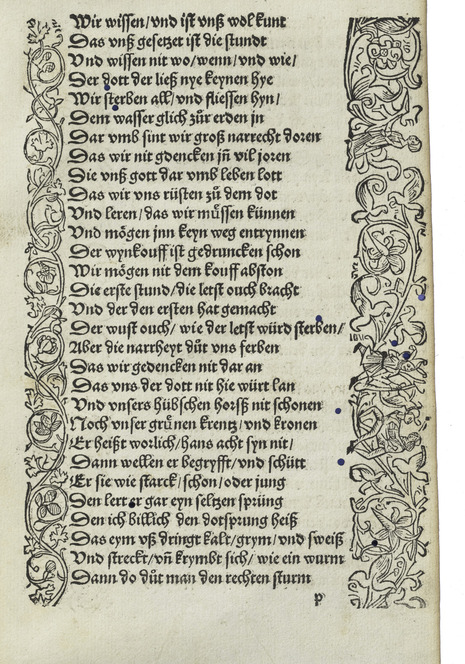 Wir wissen/vnd ist vnß wol kunt
Das vnß gesetzet ist die stundt
Vnd wissen nit wo/wenn/vnd wie/
Der dott der ließ nye keynen hye
Wir sterben all/vnd fliessen hyn/
Dem wasser glich zůr erden jn
Dar vmb sint wir groß narrecht doren
Das wir nit gdencken jn̄ vil joren
Die vnß gott dar vmb leben lott
Das wir vns rüsten zů dem dot
Vnd leren/das wir můssen künnen
Vnd mögen jnn keyn weg entrynnen
Der wynkouff ist gedruncken schon
Wir mögen nit dem kouff abston
Die erste stund/die letst ouch bracht
Vnd der den ersten hat gemacht
Der wust ouch/ wie der letst würd sterben/
Aber die narrheyt důt vns ferben
Das wir gedencken nit dar an
Das vns der dott nit hie würt lan
Vnd vnsers hübschen horß nit schonen
Noch vnser grůnen krentz/vnd kronen
Er heißt worlich/hans acht syn nit/
Dann welken er begryfft/vnd schütt
Er sie wie starck/schon/oder jung
Den lert er gar eyn seltzen sprüng
Den ich billich den dotsprung heiß
Das eym vß dringt kalt/grym/vnd sweiß
Vnd streckt/vn̄ krymbt sich/ wie ein wurm
Dann do důt man den rechten sturm
p